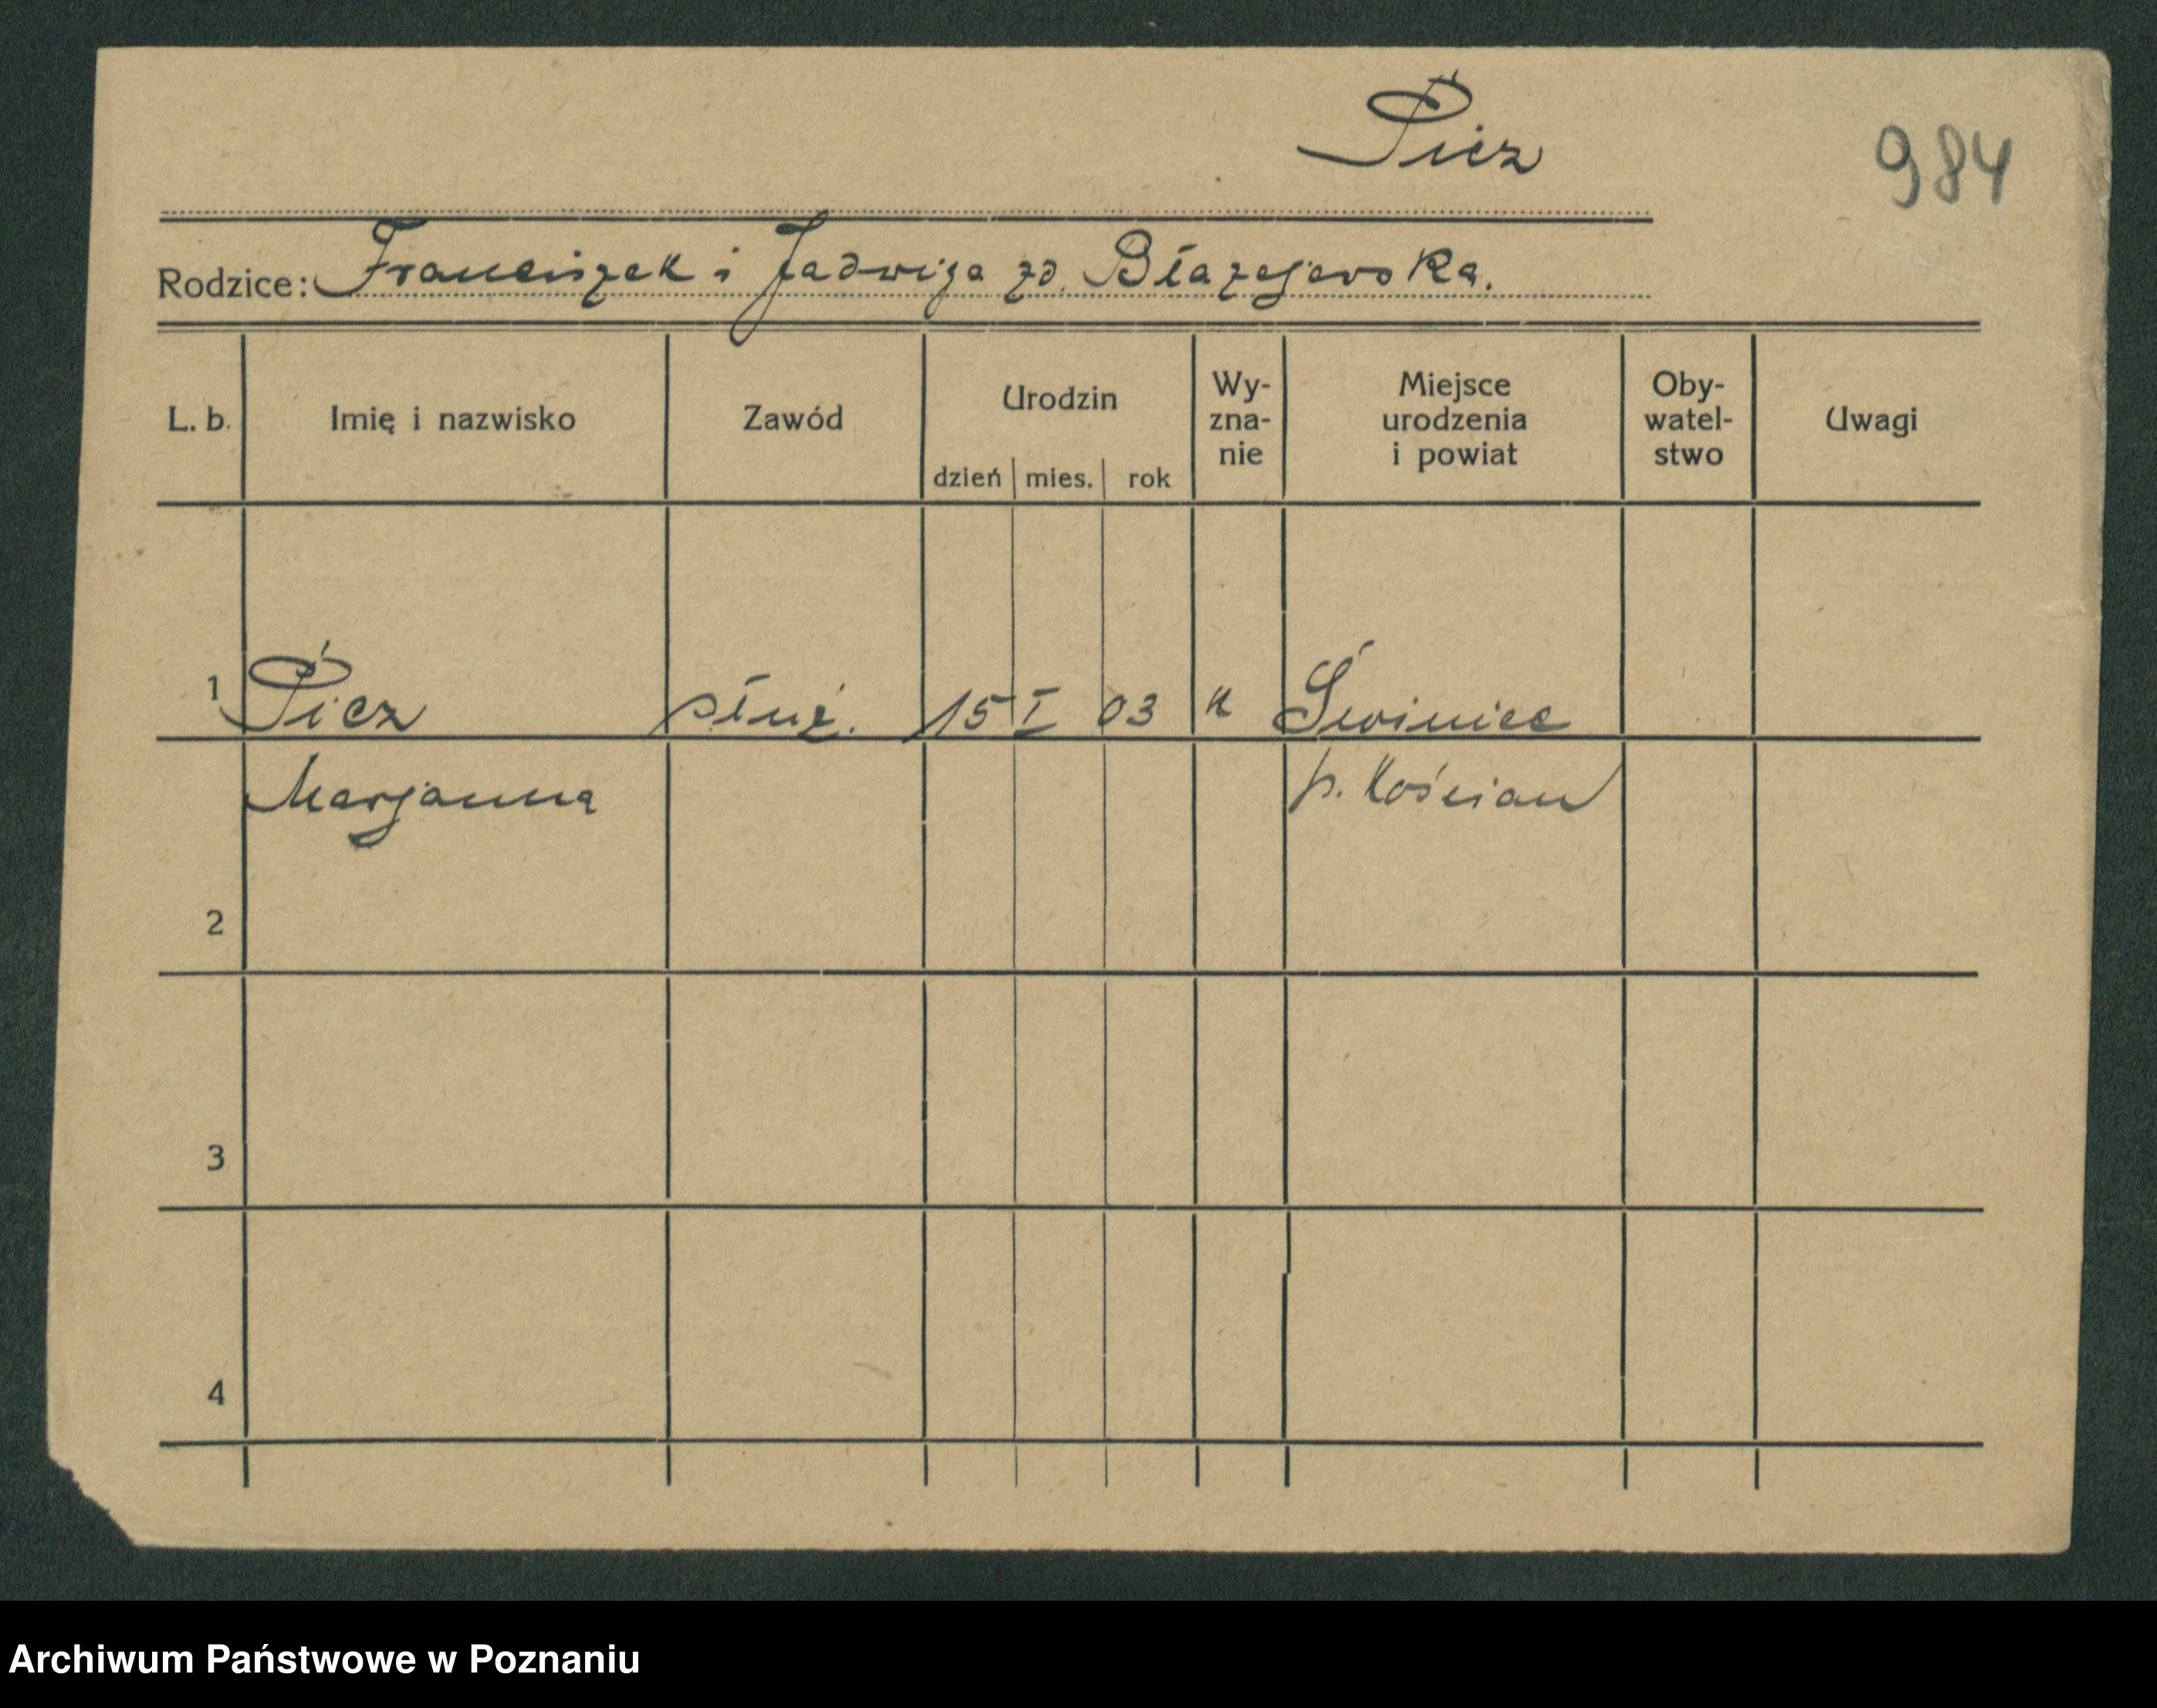 Picz
984
Rodzice: Franciszek i Jadwiga zd. Błażejewska.
L. b. Imię i nazwisko Zawód Urodzin dzień mies. rok Wy-zna-nie Miejsce urodzenia i powiat Oby-watel-stwo Uwagi
1 Picz służ. 15 I 03 k Świniec
Marjanna p. Kościan
2
3
4
Archiwum Państwowe w Poznaniu